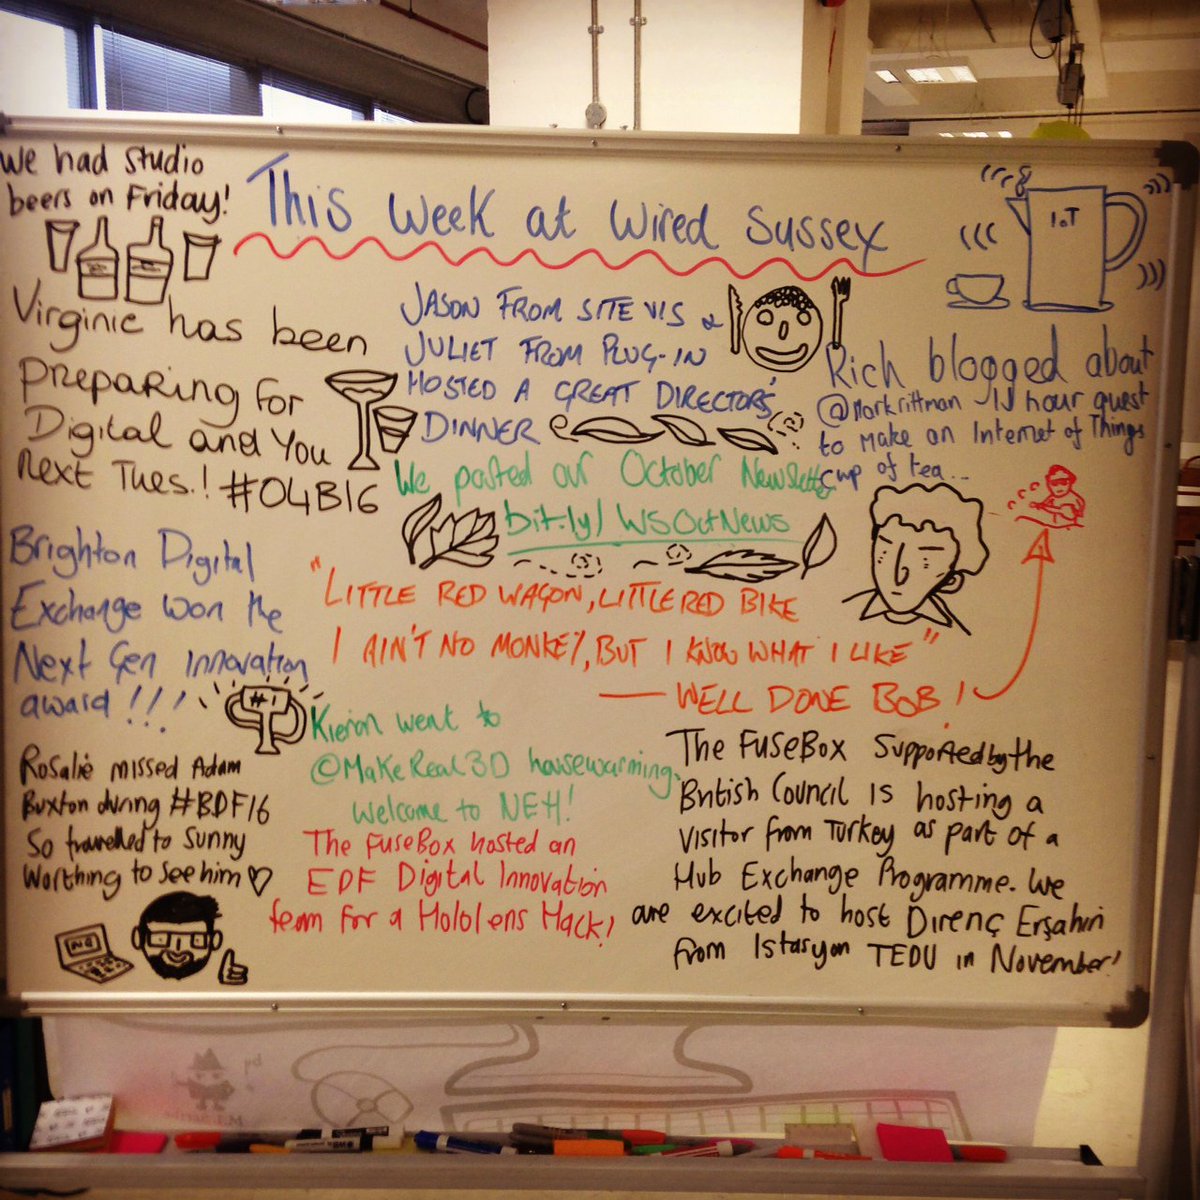 We had studio
beers on Friday!
This Week at Wired Sussex
IoT
Virginie has been
preparing for
Digital and You
next Tues.! #O4B16
JASON FROM SITE VIS &
JULIET FROM PLUG-IN
HOSTED A GREAT DIRECTORS'
DINNER
Rich blogged about
@markrittman 11 hour quest
to make an Internet of Things
cup of tea...
We posted our October Newsletter
bit.ly/WSOctNews
Brighton Digital
Exchange won the
Next Gen Innovation
award!!!
#1
"LITTLE RED WAGON, LITTLE RED BIKE
I AIN'T NO MONKEY, BUT I KNOW WHAT I LIKE"
— WELL DONE BOB!
Rosalie missed Adam
Buxton during #BDF16
So travelled to Sunny
Worthing to see him
Kieron went to
@MakeReal3D housewarming.
Welcome to NEH!
The FuseBox hosted an
EDF Digital Innovation
team for a Hololens Hack!
The FuseBox supported by the
British Council is hosting a
visitor from Turkey as part of a
Hub Exchange Programme. We
are excited to host Direnç Erşahin
from Istasyon TEDU in November!